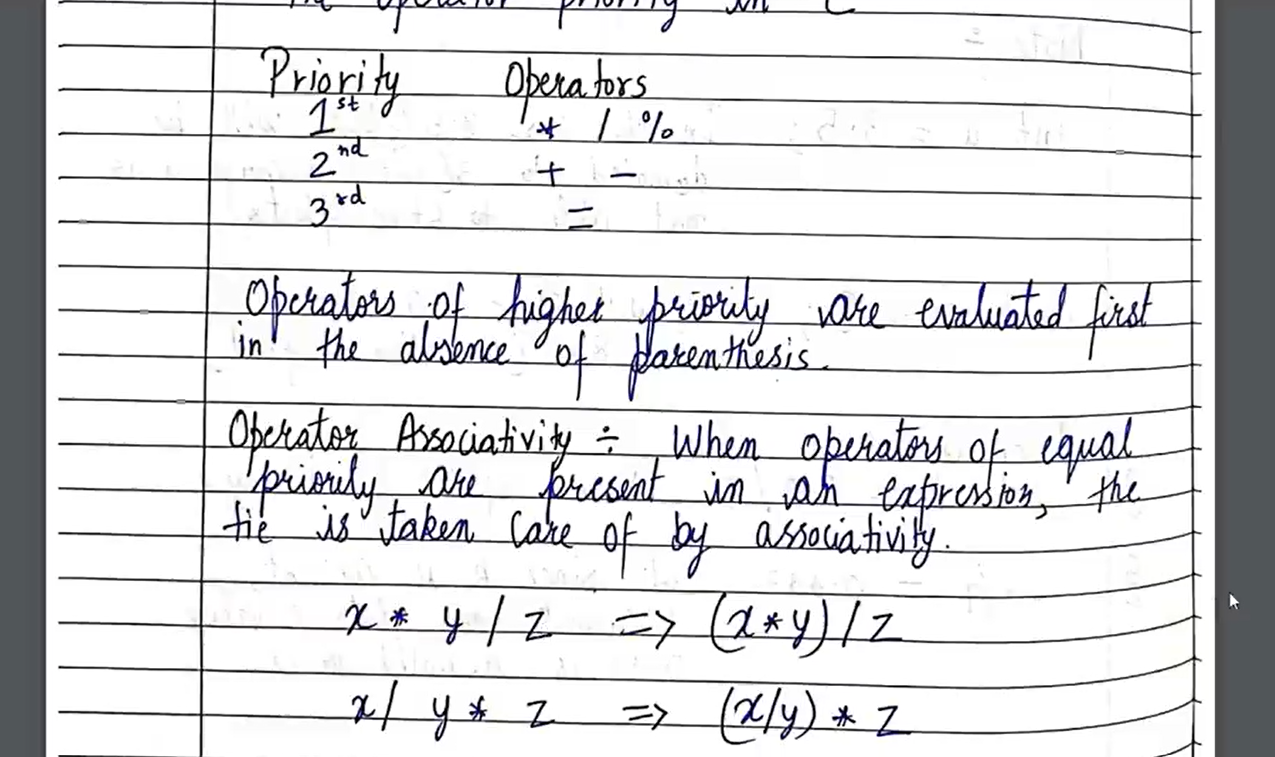 the operator priority in C
Priority Operators
1st * / %
2nd + -
3rd =
Operators of higher priority are evaluated first
in the absence of parenthesis.
Operator Associativity ÷ When operators of equal
priority are present in an expression, the
tie is taken care of by associativity.
x * y / z => (x*y)/z
x/ y * z => (x/y) * z